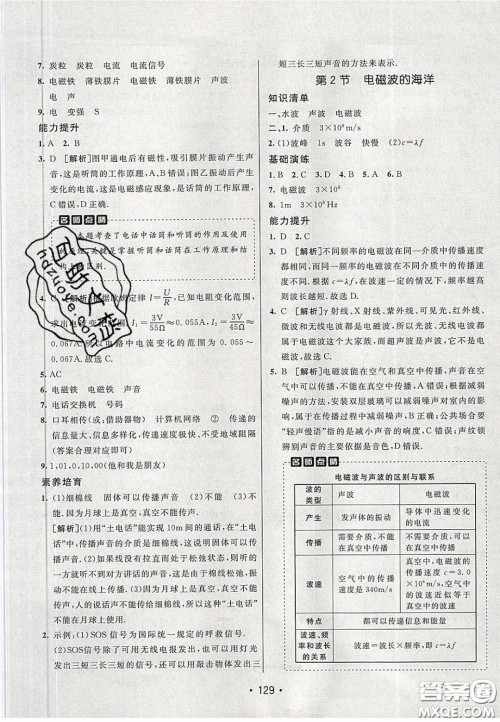 7. 炭粒 炭粒 电流 电流信号
8. 电磁铁 薄铁膜片 电磁铁 薄铁膜片 声波
电 电 变强 S
能力提升
1. A 2. B
3. D [解析]图甲通电后有磁性，吸引膜片振动产生声
音，这是听筒的工作原理，A、B错误；图乙振动后产生
变化的电流，这是电磁感应现象，是话筒的工作原理，
C错误，D正确。
名师点睛
本题考查了电话中话筒和听筒的作用及使用
4. C [解析]根据欧姆定律 I=U/R，已知电阻变化范围，
求出电流变化范围 I=3V/55Ω≈0.055A，I=3V/45Ω≈
0.067A，所以电路中电流变化的范围为0.055～
0.067A。故选C。
5. AC
6. 电磁铁 电磁铁 声音
7. 电话交换机 号码
8. 口耳相传(或：借助器物) 计算机网络 ② 传递的
信息量大、信息实现多样化、传递的距离不受阻隔
(答案合理对即可)
9. 1,01,0,10,00(他和我是朋友)
素养培育
1. (1)细棉线 固体可以传播声音 (2)不能 (3)不
能 因为月球上是真空，真空不能传声
[解析](1)用“土电话”能实现10m间的通话，在“土电
话”中是通过细棉线传播声音的，这说明固体可以传
播声音。(2)如果没有将棉线拉直而处于松弛状态，
则听的一方就听不到对方讲话的声音，这是由于棉线松弛，振动不
能传播。(3)因为月球上是真空，真空不能传播声音，
声音不能从空气传播给细棉线，所以这样的“土电话”
在月球上不能通话。
2. 示例：(1)SOS信号为国际统一规定的一种求救信
号。(2)SOS信号可用无线电报发出，也可以使用灯
光发出三短三长三短的信号，还可以敲击物体发出三
短三长三短声音的方法来表示。
第2节 电磁波的海洋
知识清单
一、水波 声波 电磁波
二、1. 介质 3×10⁸m/s 2. (1)波峰 1s 波谷 快慢 (2)c=λf
基础演练
1. B 2. C 3. D 4. D 5. B 6. A
7. 电磁波 3×10⁸
8. 1m 3×10⁸Hz
能力提升
3. D [解析]不同频率的电磁波在同一介质中传播速度
相同，在不同介质中传播速度不同，故A、B、C错误；
根据c=λf，在电磁波速一定的情况下，频率越高，波
长越短。故选D。
4. C [解析]γ射线、X射线、紫外线、可见光、红外线、
微波和无线电波都是电磁波。微波和无线电波都属
于电磁波这个大家族，而超声波属于声波，不属于电
磁波。故选C。
5. B [解析]电磁波能在空气和真空中传播，声音在空
气中能传播，不能在真空中传播，A错误；根据减弱噪
声的途径知，安装双层玻璃可以减弱噪声对室内的影
响，是在传播过程中减弱了噪声，B正确；公共场合要
“轻声慢语”指的是降低声音的响度，C错误；声纹锁
辨别声音的主要依据是音色，D错误。故选B。
名师点睛
电磁波与声波的区别与联系
波的类型 声波 电磁波
产生 发声体的振动 导体中迅速变化的电流
传播 需要介质，不能在真空中传播 不需要介质，可以在真空中传播
波速 空气中的传播速度是340m/s 真空中，电磁波的传播速度c=3.0×10⁸m/s，空气中的波速近似等于真空中的波速
特点 都可以传递信息和能量
波速、频率和波长的关系 波速=波长×频率，即c=λf
129
答案圈
MXQE.COM